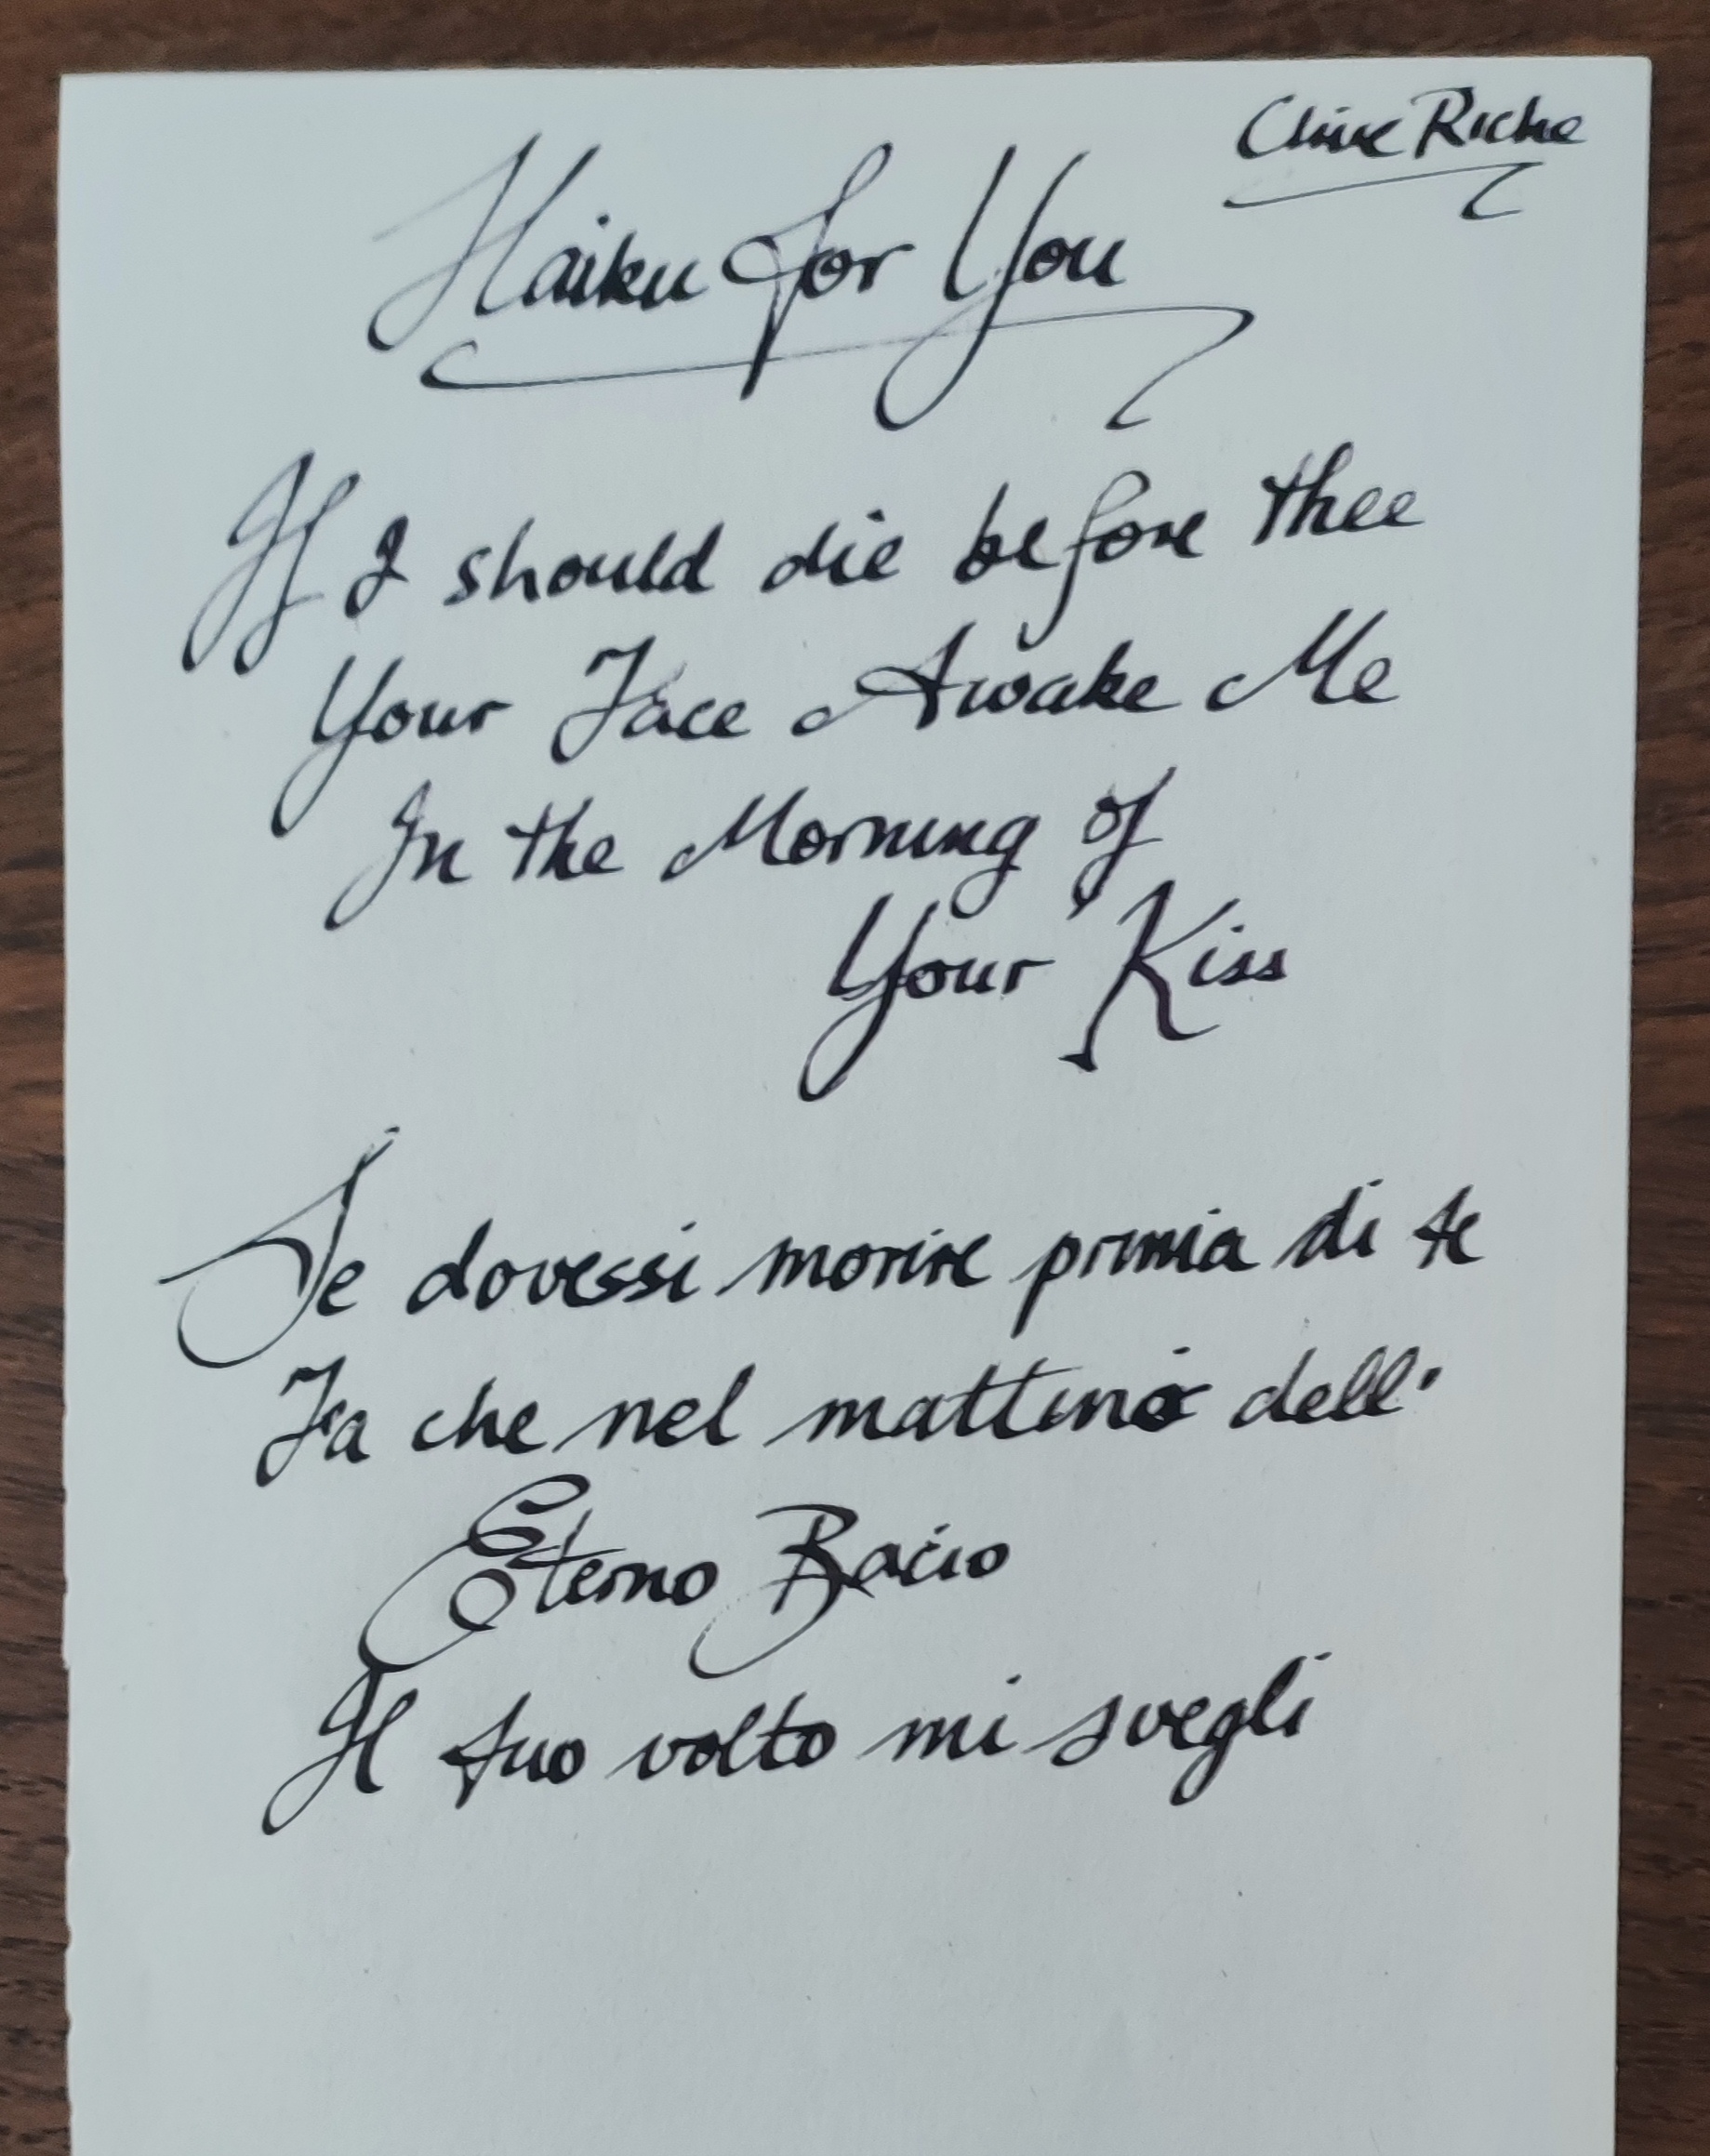 Clive Riche
Haiku for You
If I should die before thee
Your Face Awake Me
In the Morning of
Your Kiss
Se dovessi morire prima di te
Fa che nel mattino dell'
Eterno Bacio
Il tuo volto mi svegli